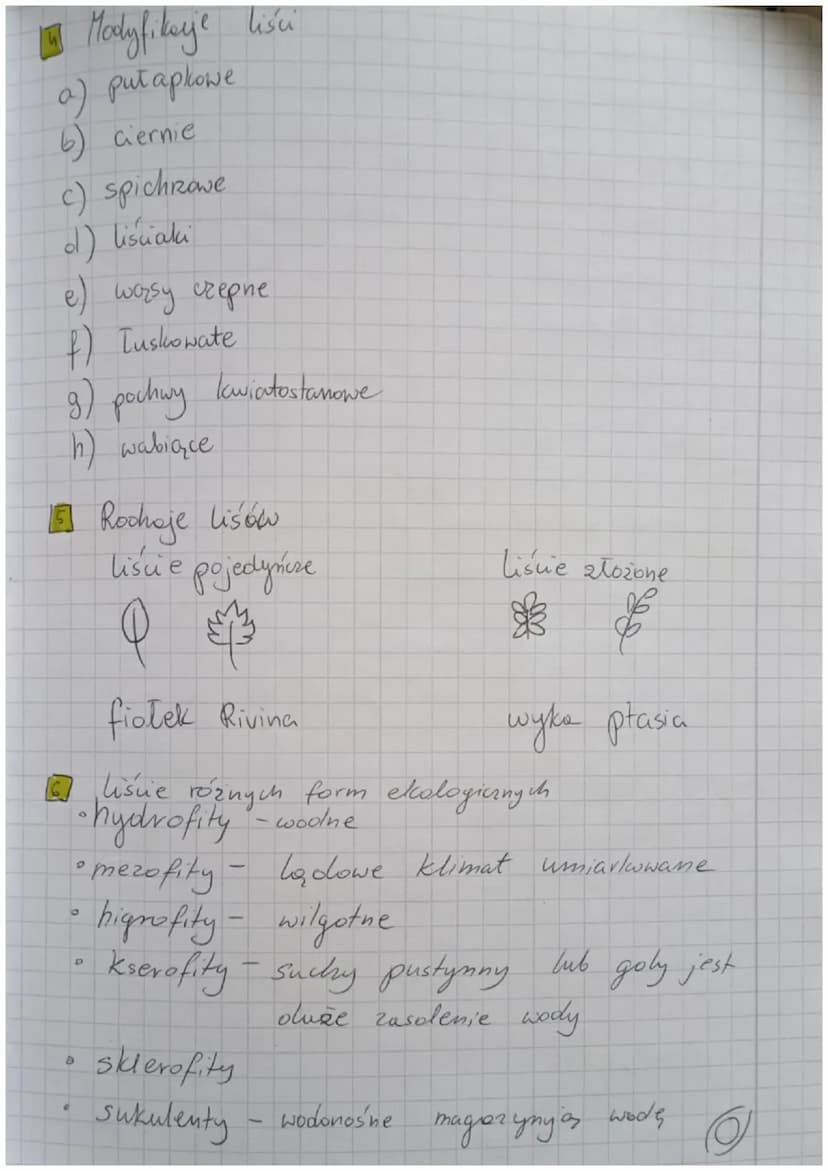 4 Modyfikacje liści
a) pułapkowe
b) ciernie
c) spichrzowe
d) liściaki
e) wąsy czepne
f) Łuskowate
g) pochwy kwiatostanowe
h) wabiące
5 Rodzaje liśów
liście pojedyńcze liście złożone
fiołek Rivina wyka ptasia
6 liście różnych form ekologicznych
• hydrofity - wodne
• mezofity - lądowe klimat umiarkowane
• higrofity - wilgotne
• kserofity - suchy pustynny lub gdy jest
duże zasolenie wody
• sklerofity
• sukulenty - wodonośne magazynują wodę